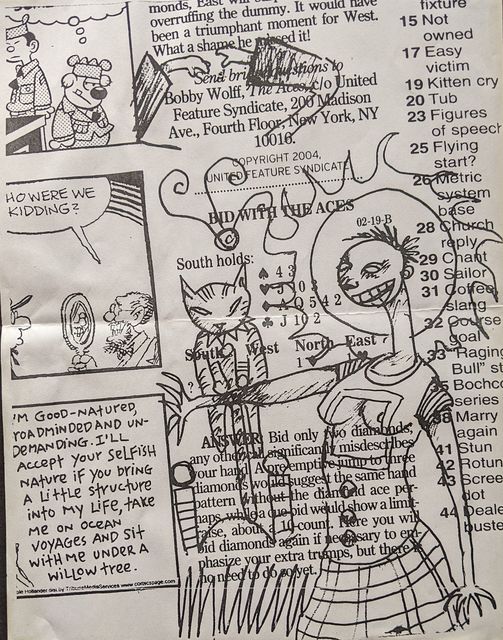 monds, East will
overruffing the dummy. It would have
been a triumphant moment for West.
What a shame he missed it!
Send bri stions to
Bobby Wolff, The Aces, c/o United
Feature Syndicate, 200 Madison
Ave., Fourth Floor, New York, NY
10016.
COPYRIGHT 2004,
UNITED FEATURE SYNDICATE
BID WITH THE ACES
02-19-B
South holds:
♠ 4 3
♥ J 10 3
♦ A Q 5 4 2
♣ J 10 2
South West North East
1 ♥
?
ANSWER: Bid only two diamonds,
any other call significantly misdescribes
your hand. A preemptive jump to three
diamonds would suggest the same hand
pattern without the diamond ace per-
haps, while a cue bid would show a limit-
raise, about 10-count. Here you will
bid diamonds again if necessary to em-
phasize your extra trumps, but there is
no need to do so yet.
fixture
15 Not
owned
17 Easy
victim
19 Kitten cry
20 Tub
23 Figures
of speech
25 Flying
start?
26 Metric
system
base
28 Church
reply
29 Chant
30 Sailor
31 Coffee,
slang
32 Course
goal
33 "Ragin
Bull" st
35 Bochco
series
38 Marry
again
41 Stun
42 Rotun
43 Scree
dot
44 Deale
buste
HO WERE WE
KIDDING?
I'M GOOD-NATURED,
ROADMINDED AND UN-
DEMANDING. I'LL
ACCEPT YOUR SELFISH
NATURE IF YOU BRING
A LITTLE STRUCTURE
INTO MY LIFE, TAKE
ME ON OCEAN
VOYAGES AND SIT
WITH ME UNDER A
WILLOW TREE.
ole Hollander dist by TribuneMediaServices www.comicspage.com